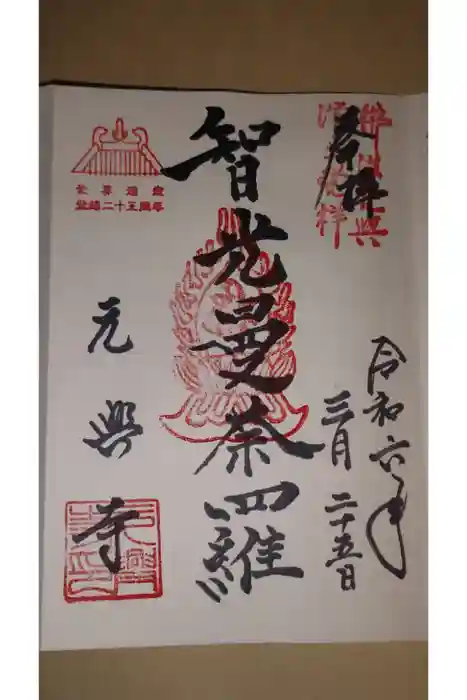 奉拝
令和六年
三月二十五日
智光曼荼羅
元興寺
世界遺産
登録二十五周年